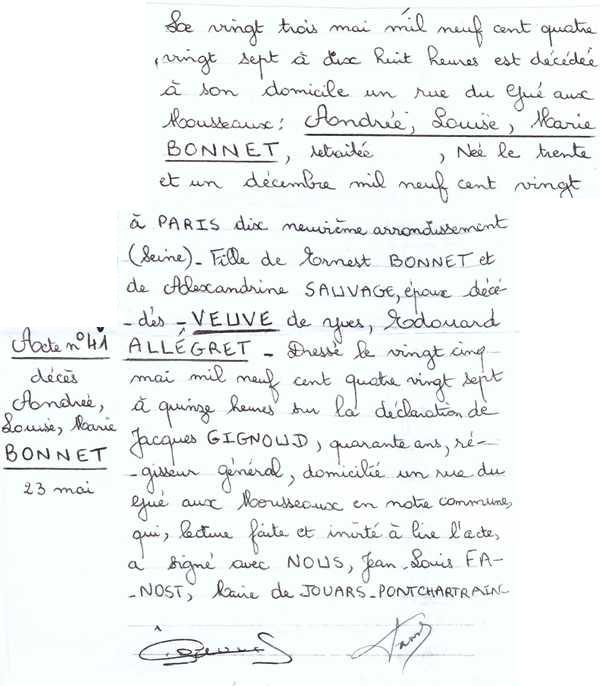 Le vingt trois mai mil neuf cent quatre
vingt sept à dix huit heures est décédée
à son domicile un rue du Gué aux
Mousseaux: Andrée, Louise, Marie
BONNET, retraitée , Née le trente
et un décembre mil neuf cent vingt
à PARIS dix neuvième arrondissement
(Seine)_ Fille de Ernest BONNET et
de Alexandrine SAUVAGE, époux décé-
-dés _ VEUVE de Yves, Edouard
ALLÉGRET _ Dressé le vingt cinq
mai mil neuf cent quatre vingt sept
à quinze heures sur la déclaration de
Jacques GIGNOUD, quarante ans, ré-
-gisseur général, domicilié un rue du
Gué aux Mousseaux en notre commune,
qui, lecture faite et invité à lire l'acte,
a signé avec NOUS, Jean_Louis FA-
-NOST, Maire de JOUARS_PONTCHARTRAIN
Acte n°41
décès
Andrée,
Louise, Marie
BONNET
23 mai